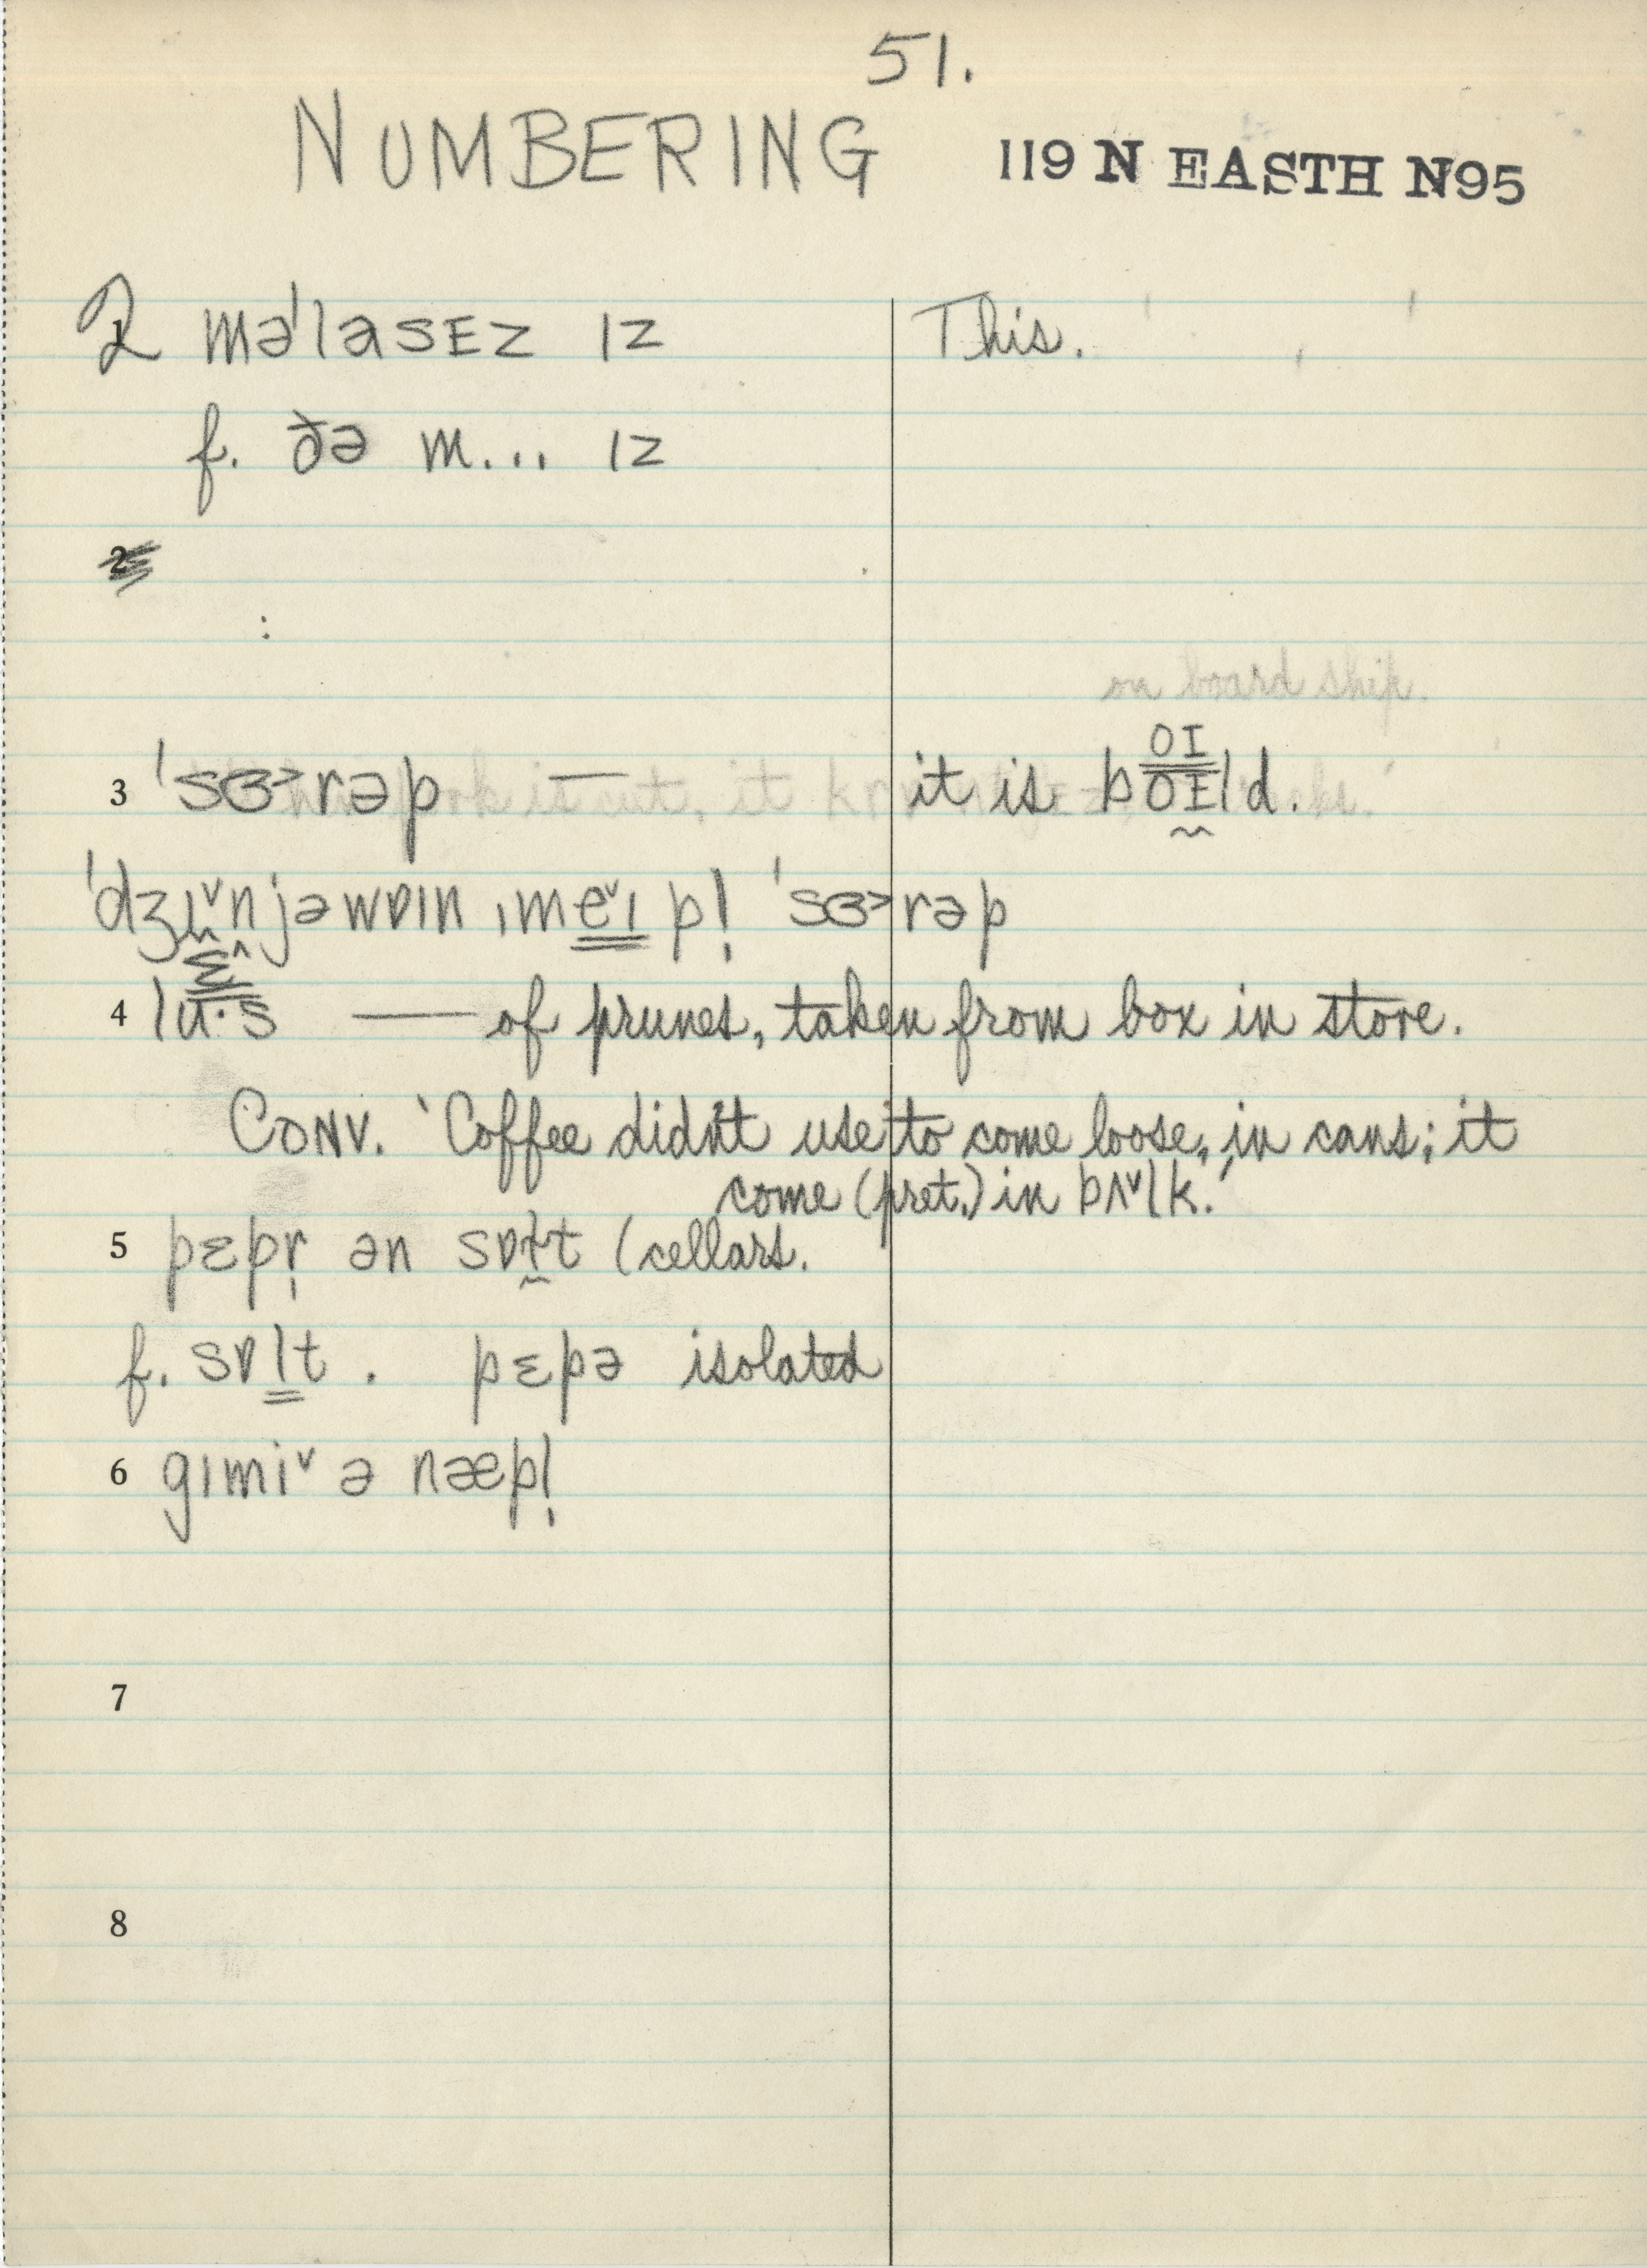 51.
NUMBERING 119 N EASTH N95
2 məˈlasɛz ɪz This.
f. ðə m... ɪz
2
:
on board ship.
3 ˈsɝrəp — it is bɔɪld.
ˌmeˇɪp! ˈsɝrəp
4 lu·s — of prunes, taken from box in store.
CONV. 'Coffee didn't use to come loose, in cans; it
come (pret.) in bʌˇlk.'
5 pɛpr̩ ən sɒlt (cellars.
f. sɒlt . pɛpə isolated
6 gɪmiˇ ə næp!
7
8